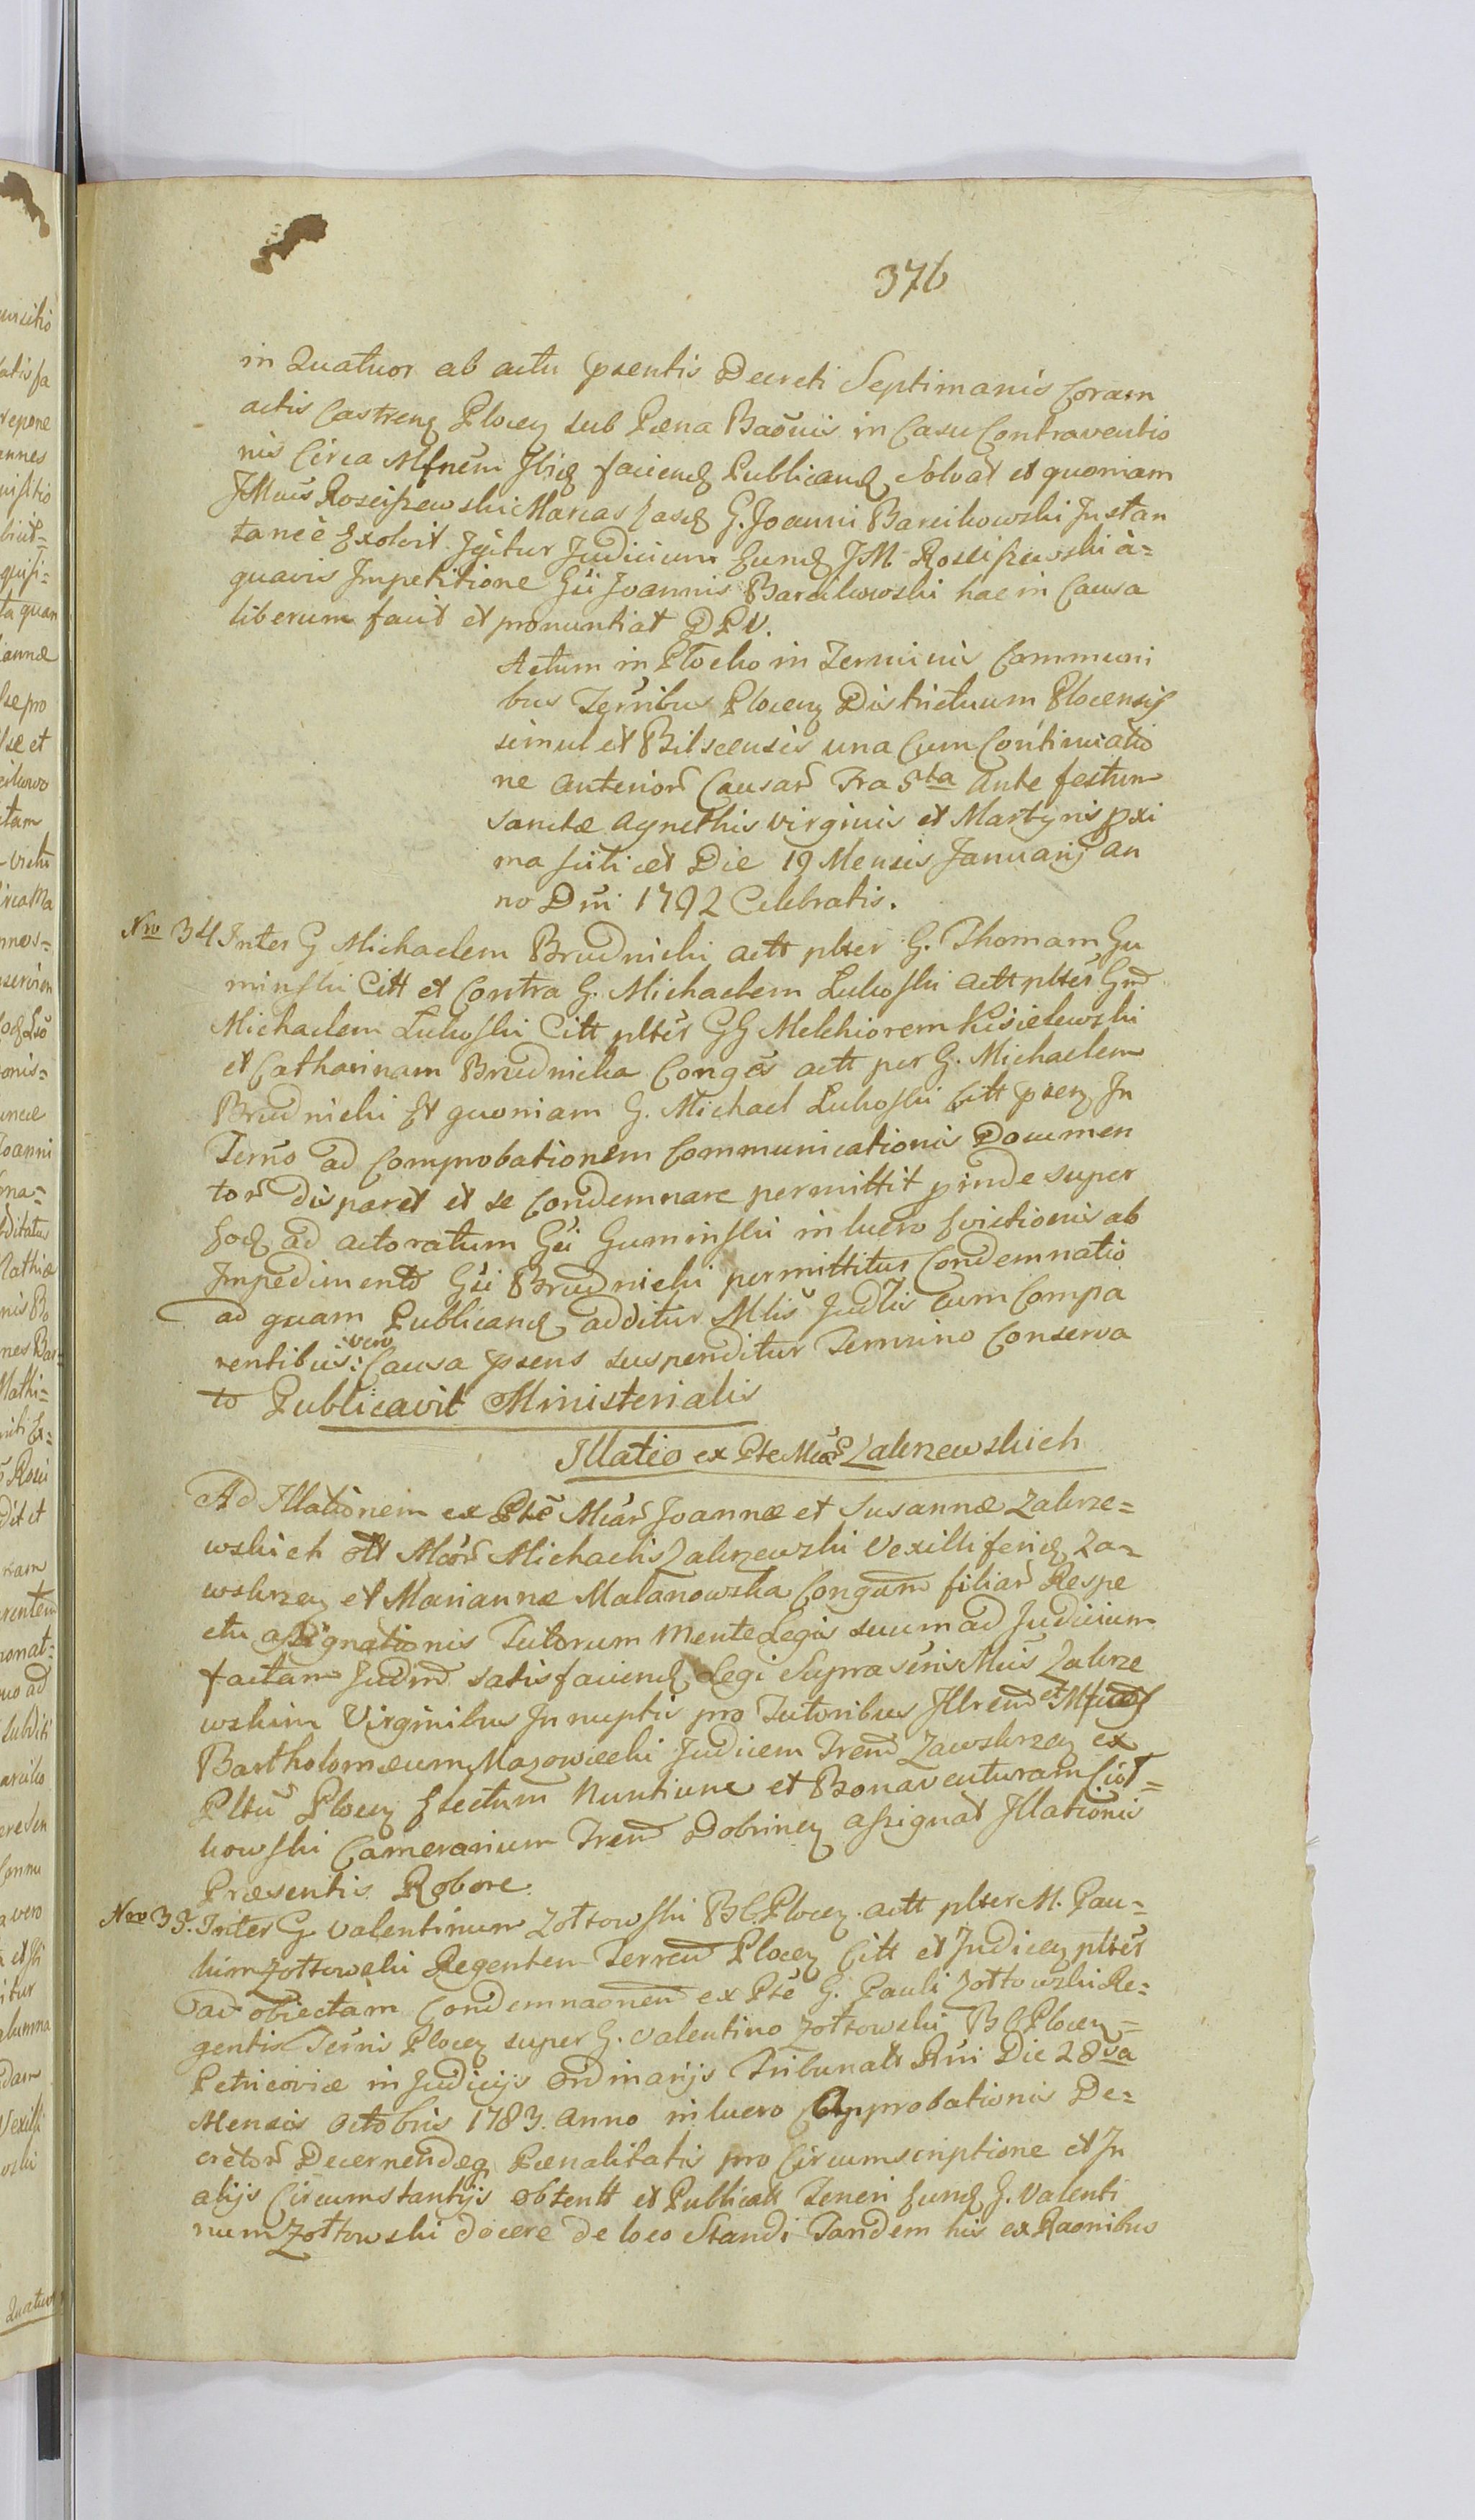 376
in Quatuor ab actu pzentis Decreti Septimanis Coram
actis Castrens Plocen sub Pæna Baōnis in Casu Contraventio
nis Circa Mfnem Ibiq faciend Publicand Solvat et quoniam
IMnus Rosciszewski Marcas easd G. Joanni Barcikowski Instan
tanee Exolvit Igitur Judicium Eund JM. Rosciszewski à=
quavis Impetitione Gsi Joannis Barcikowski hac in Causa
liberum facit et pronuntiat DPV.
Actum in Płocko in Terminis Communi
bus Terribus Plocen Districtuum Plocensis
simul et Bilscensis una Cum Continuatio
ne anterior Causar Fra 5ta Ante festum
Sanctæ Agnethis virginis et Martyris pxi
ma scilicet Die 19 Mensis Januarij an
no Dni 1792 Celebratis.
Nro 34 Inter G Michaelem Brudnicki actt plter G. Thomam Gu
minski Citt et Contra G. Michaelem Lukoski actt plter Gnd
Michaelem Lukoski Citt plter GG Melchiorem Kisielewski
et Catharinam Brudnicka Conges actt per G. Michaelem
Brudnicki Et quoniam G. Michael Lukoski Citt pzens In
Terno ad Comprobationem Communicationis Documen
tor disparet et se Condemnare permittit pinde super
Eod ad actoratum Gsi Guminski in lucro Evictionis ab
Impedimento Gsi Brudnicki permittitur Condemnatio
ad quam Publicand additur Mlis Judlis cum Compa
rentibus: vero Causa pzens suspenditur Termino Conserva
to Publicavit Ministerialis
Illatio ex Pte Mcar Zakrzewskich
Ad Illationem ex Pte Mcar Joannæ et Susannæ Zakrze=
wskich olt Mcor Michaelis Zakrzewski Vexilliferid Za=
wskrzen et Mariannæ Malanowska Congum filiar Respe
ctu assignationis Tutorum mente Legis suum ad Judicium
factam Judm satisfaciend Legi Suprascris Mcis Zakrze
wskim Virginibus Innuptis pro Tutoribus Illrem et Mfcos
Bartholomæum Mazowiecki Judicem Tren Zawskrzen ex
Pltu Plocen Electum Nuntium et Bonaventuram Ciot=
kowski Camerarium Tren Dobrinen assignat Illationis
Præsentis Robore.
Nro 35. Inter G Valentinum Zołtowski BC. Plocen. actt plter M. Pau=
lum Zołtowski Regentem Terren Plocen Citt et Judicen plter
ad objectam Condemnaonem ex Pte G. Pauli Zołtowski Re=
gentis Terris Plocen super G. Valentino Zołtowski BC Plocen=
Petricoviæ in Judicijs Ordinarijs Tribunalt Rni Die 28va
Mensis Octobris 1783. Anno in lucro Approbationis De=
cretor Decernendæq Pænalitatis pro Circumscriptione et In
alijs Circumstantijs Obtentt et Publicatt Teneri Eund G. Valenti
num Zołtowski docere de loco Standi Tandem his ex Raonibus